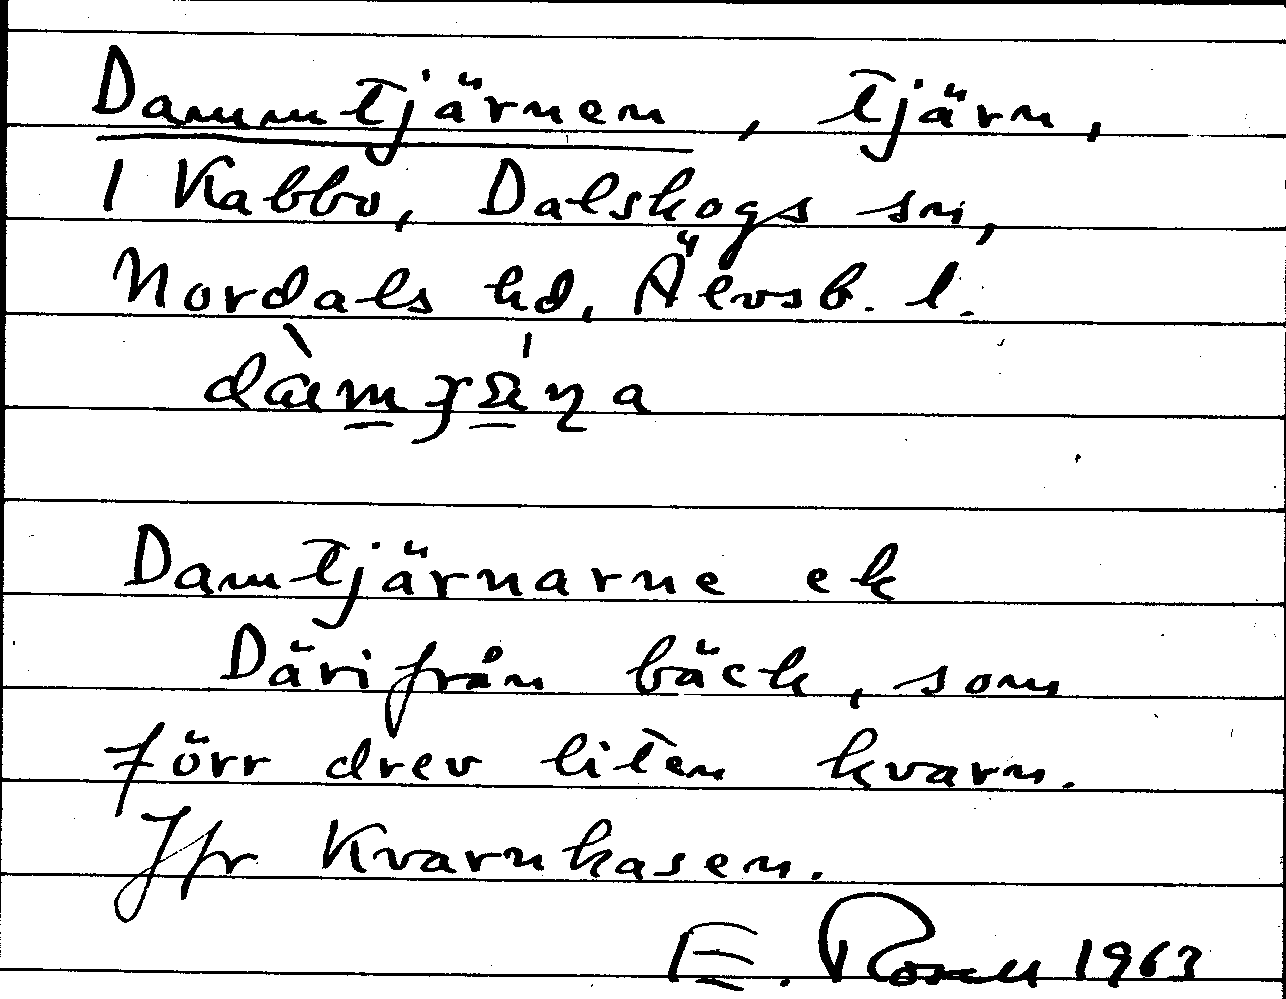 Dammtjärnen, tjärn,
1 Kabbo, Dalskogs sn,
Nordals hd, Älvsb. l.
Damtjärnarne ek
Därifrån bäck, som
förr drev liten kvarn.
Jfr Kvarnkasen.
E. Rosell 1963